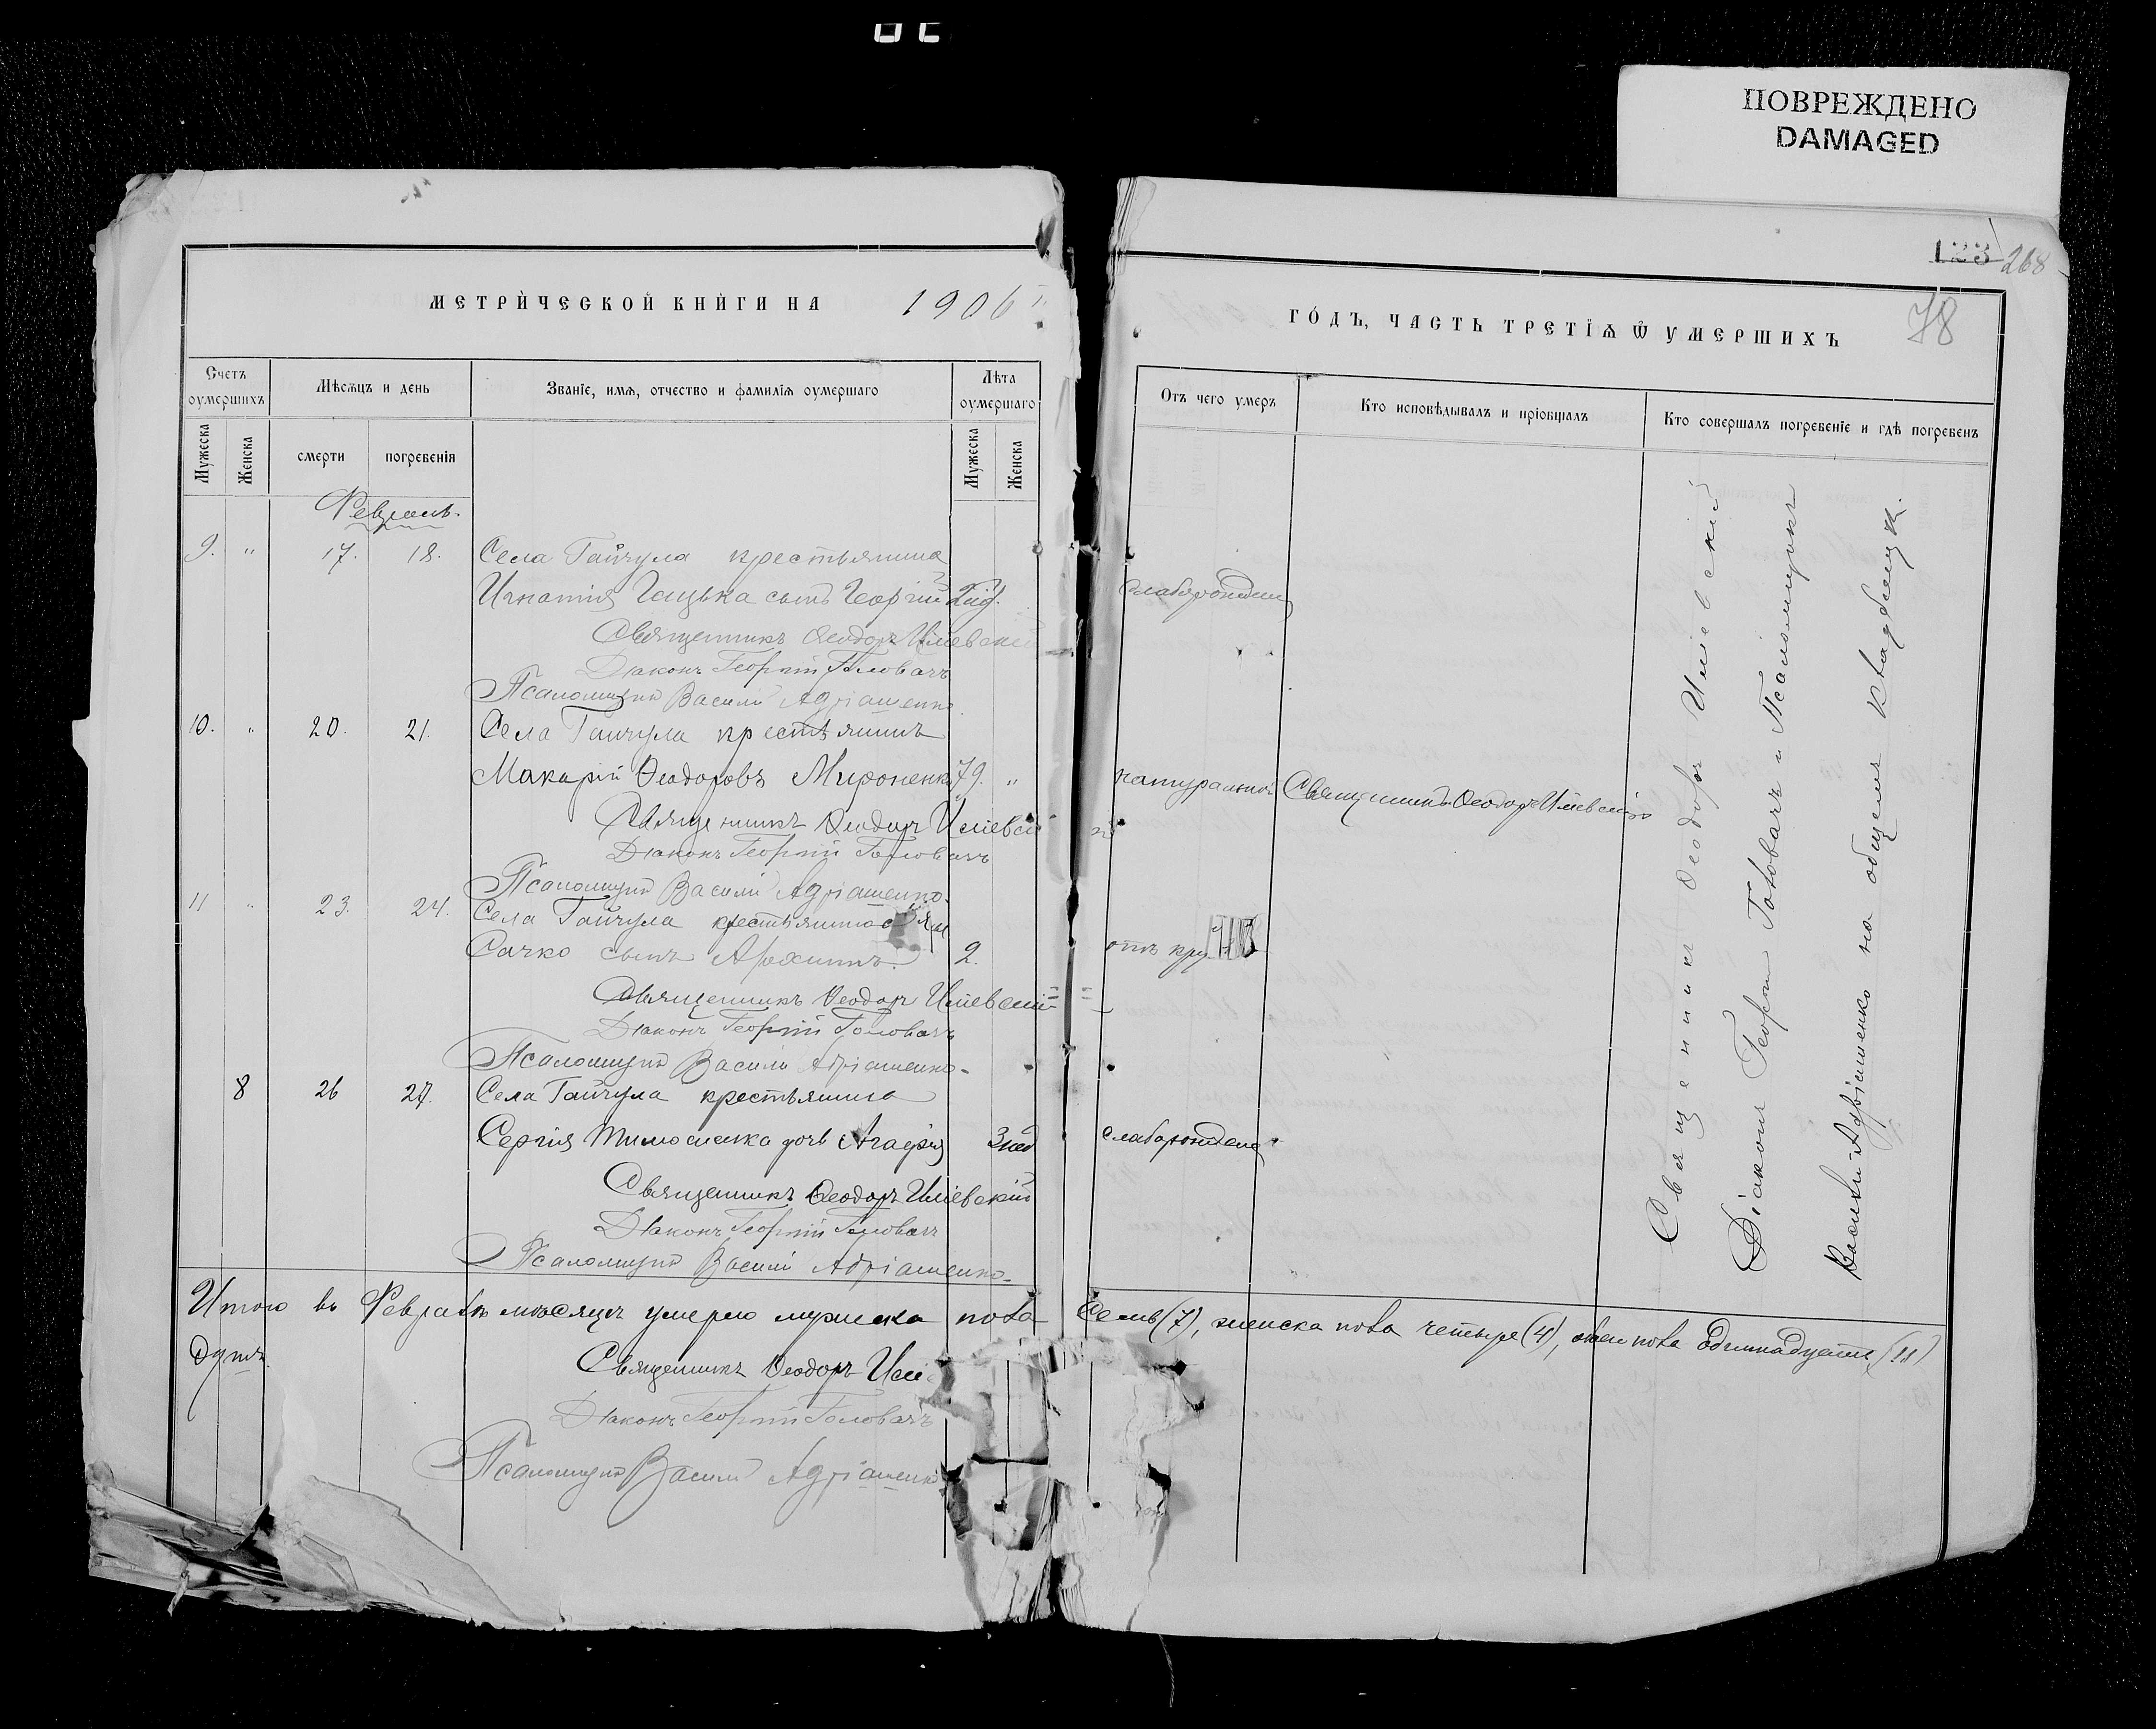 ПОВРЕЖДЕНО
DAMAGED
123 268
78
МЕТРИЧЕСКОЙ КНИГИ НА 1906 г.
ГОДЪ, ЧАСТЬ ТРЕТІѦ Ѿ УМЕРШИХЪ
Счетъ оумершихъ
Мѣсѧцъ и день
Званіе, имѧ, отчество и фамиліѧ оумершаго
Лѣта оумершаго
Отъ чего умеръ
Кто исповѣдывалъ и пріобщалъ
Кто совершалъ погребеніе и гдѣ погребенъ
Мужеска
Женска
смерти
погребенія
Мужеска
Женска
Февраль.
9. " 17. 18. Села Гайчула крестьянина
Игнатія сынъ Георгій слаборожден
Священникъ Ѳеодоръ Иліевскій
Діаконъ Георгій Головачъ
Псаломщикъ Василій Адріашенко
10. " 20. 21. Села Гайчула крестьянинъ
Макарій Ѳеодоровъ Мироненко 79. " натуральной Священникъ Ѳеодоръ Иліевскій
Священникъ Ѳеодоръ Иліевскій
Діаконъ Георгій Головачъ
Псаломщикъ Василій Адріашенко
11 " 23. 24. Села Гайчула крестьянина
Сачко сынъ 2. отъ
Священникъ Ѳеодоръ Иліевскій
Діаконъ Георгій Головачъ
Псаломщикъ Василій Адріашенко
8 26 27. Села Гайчула крестьянина
Сергія Тимошенка дочь Агафія 3 нед слаборожденa
Священникъ Ѳеодоръ Иліевскій
Діаконъ Георгій Головачъ
Псаломщикъ Василій Адріашенко
Священникъ Ѳеодоръ Иліевскій
Діаконъ Георгій Головачъ и Псаломщикъ
Василій Адріашенко на общемъ кладбищѣ.
Итого въ Февралѣ мѣсяцѣ умерло мужеска пола Семь (7), женска пола четыре (4), обоего пола Одиннадцать (11)
душъ.
Священникъ Ѳеодоръ Илі
Діаконъ Георгій Головачъ
Псаломщикъ Василій Адріашенко